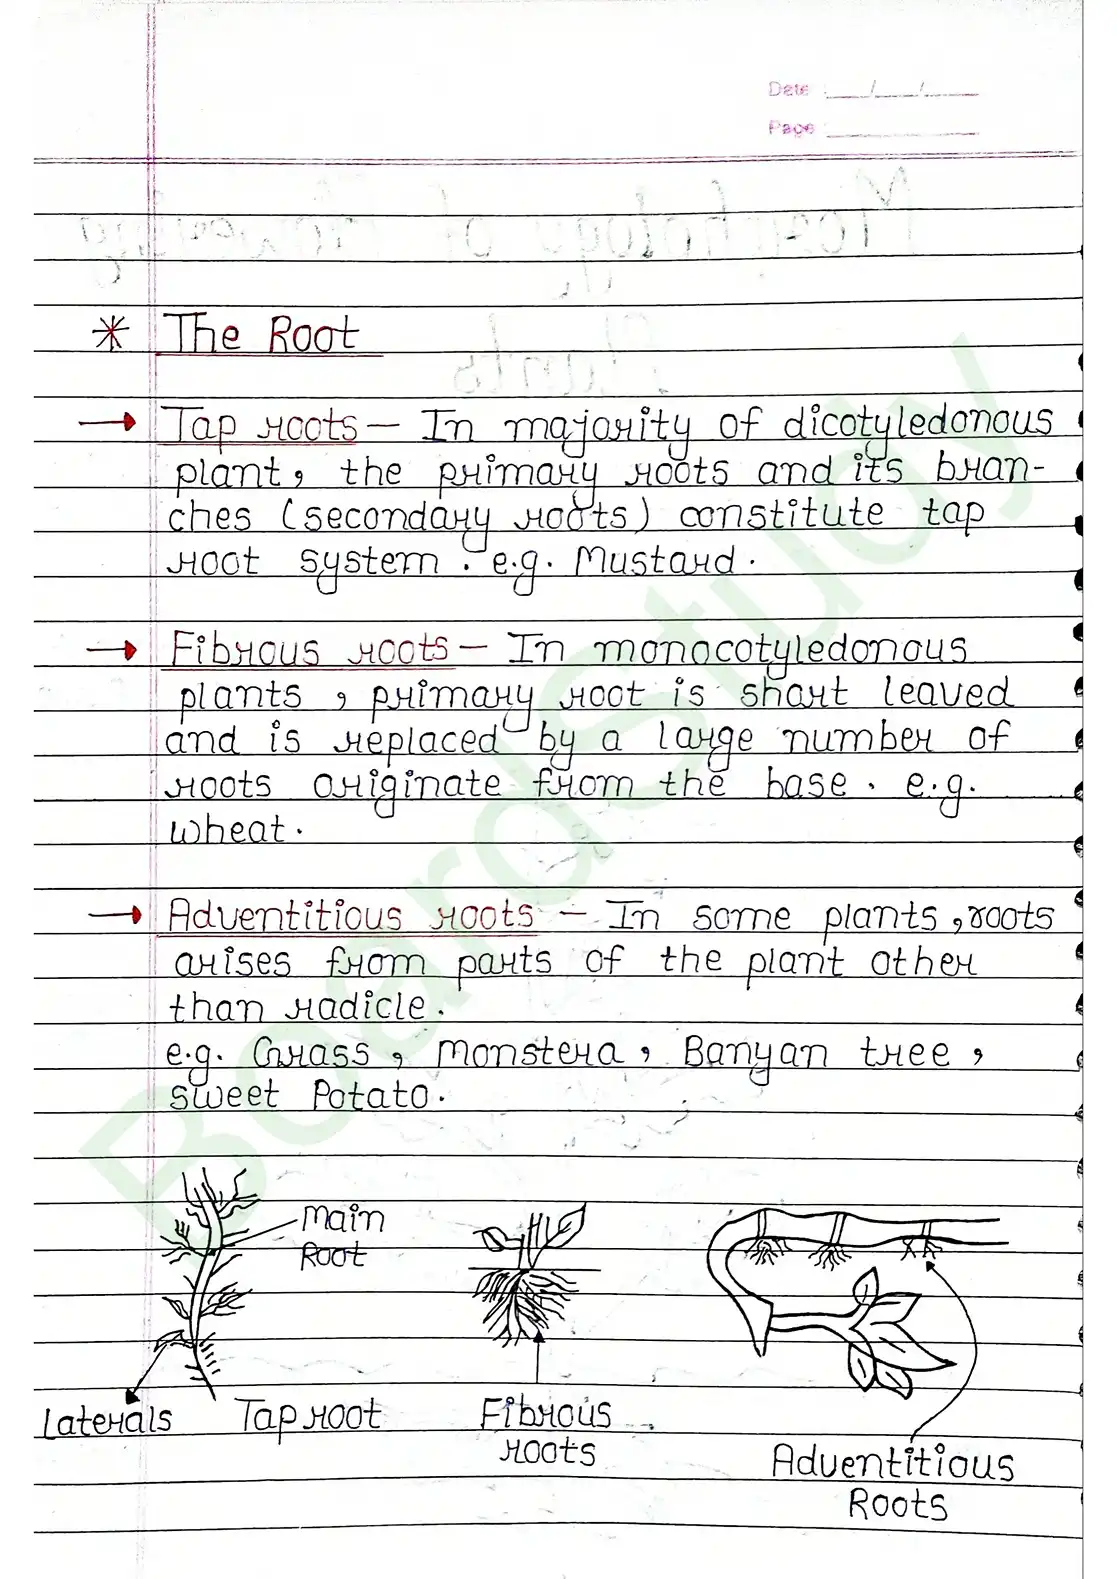 Date : __/__/__
Page : ______
Morphology of Flowering
Plants
* The Root
→ Tap roots - In majority of dicotyledonous
plant, the primary roots and its bran-
ches (secondary roots) constitute tap
root system. e.g. Mustard.
→ Fibrous roots - In monocotyledonous
plants, primary root is short leaved
and is replaced by a large number of
roots originate from the base. e.g.
wheat.
→ Adventitious roots - In some plants, roots
arises from parts of the plant other
than radicle.
e.g. Grass, Monstera, Banyan tree,
sweet Potato.
Main
Root
Laterals
Tap root
Fibrous
roots
Adventitious
Roots
BoardStudy